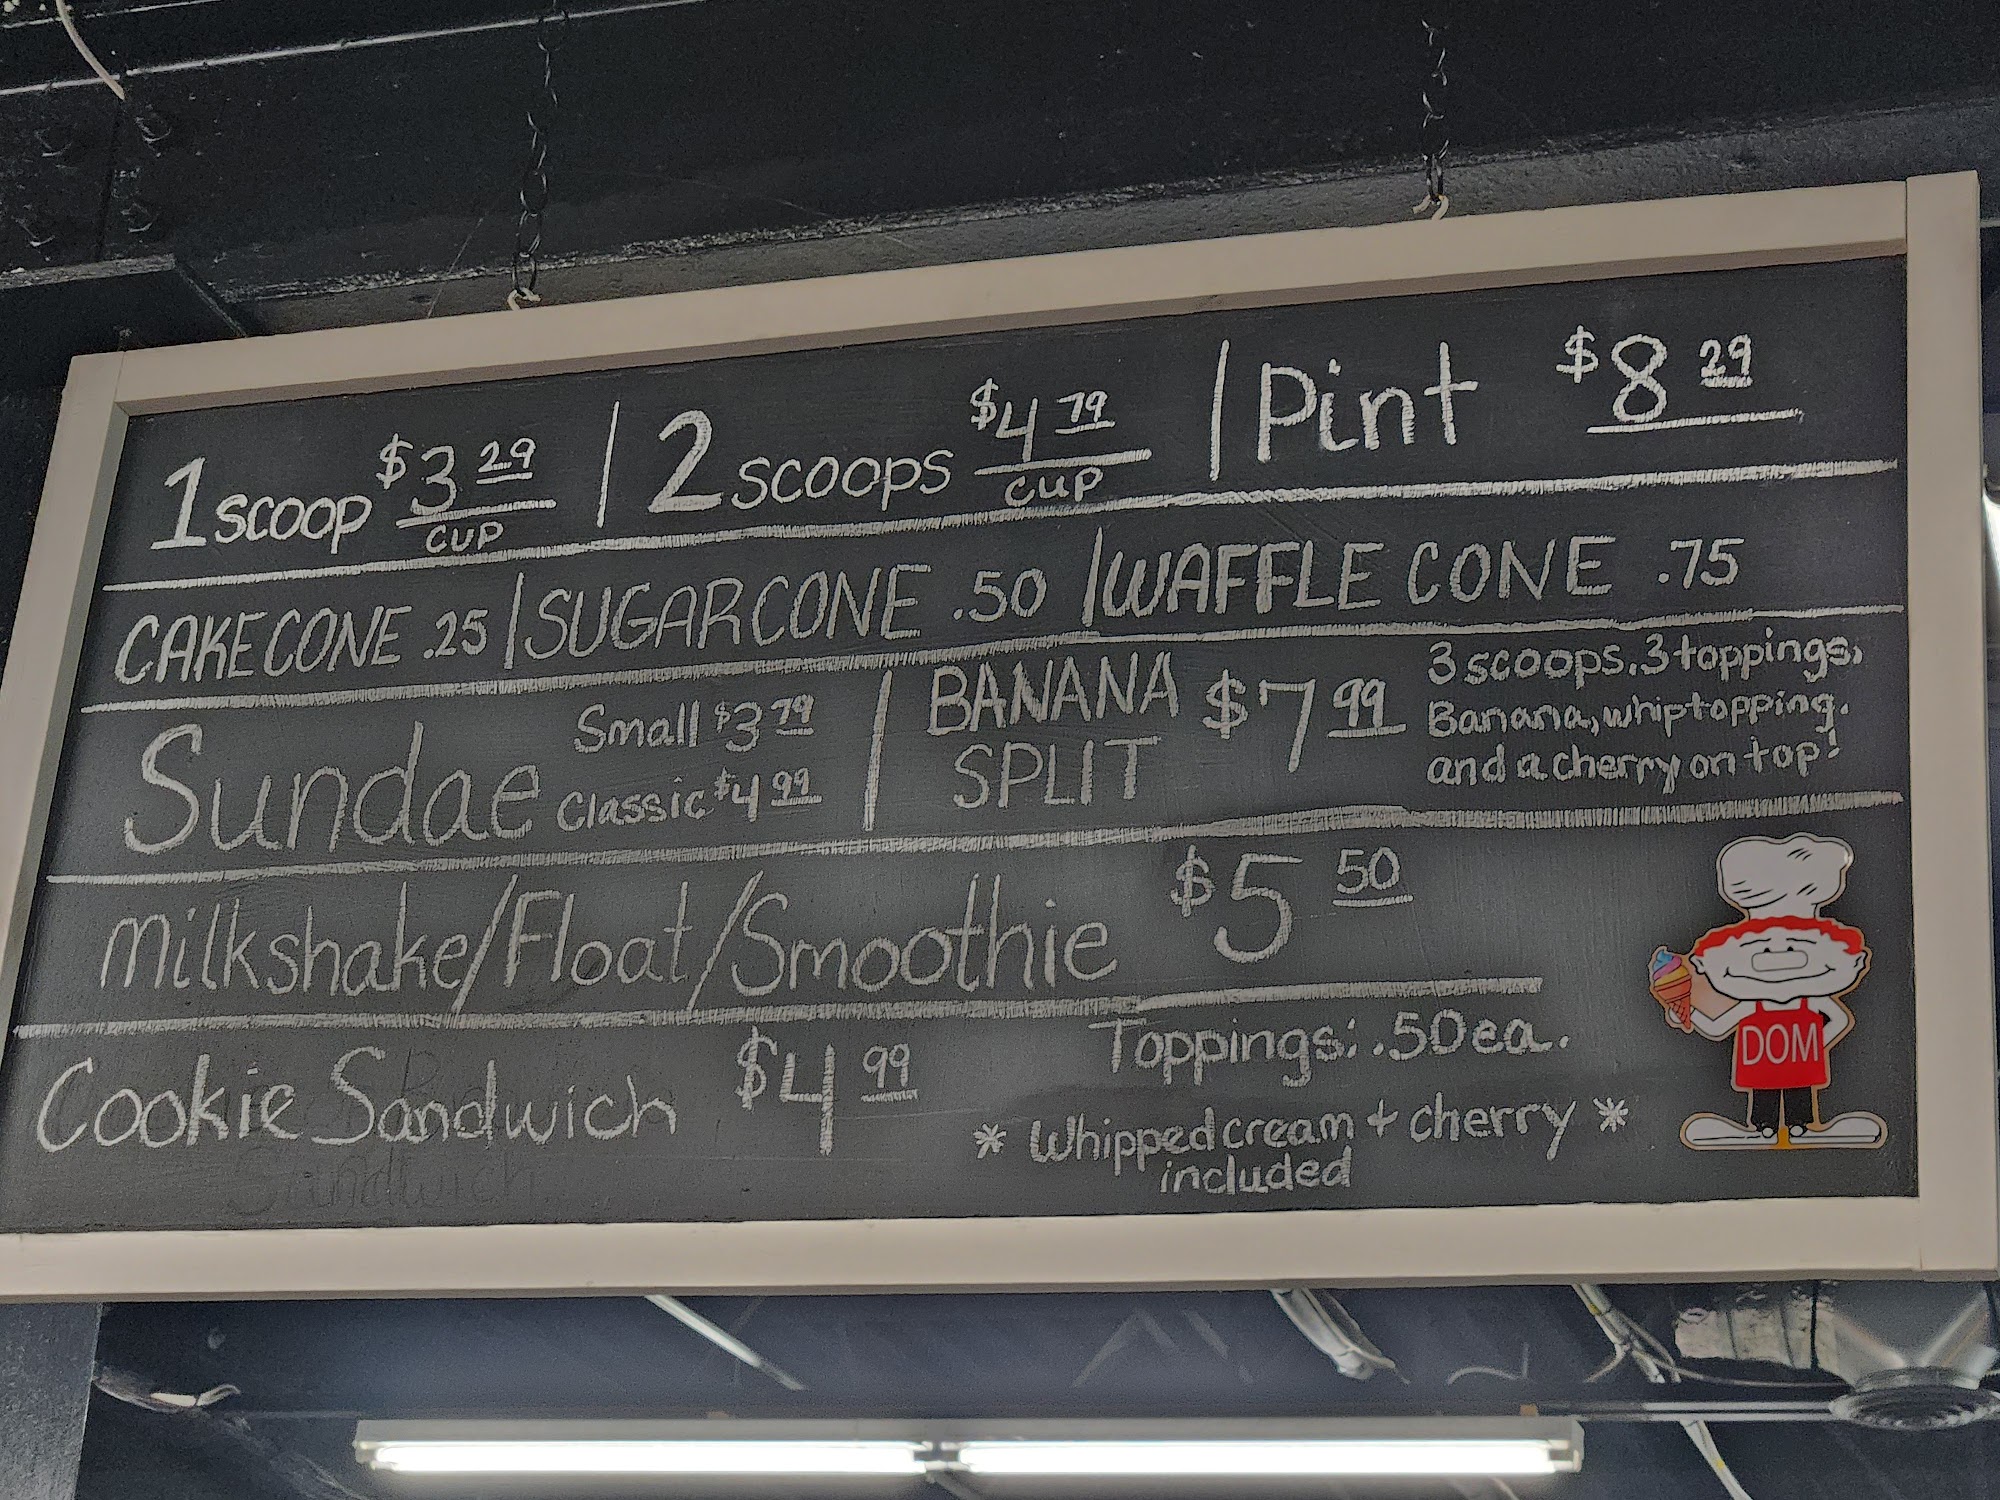 1 scoop $3 29 CUP | 2 scoops $4 79 CUP | Pint $8 29
CAKE CONE .25 | SUGAR CONE .50 | WAFFLE CONE .75
Sundae Small $3 79 Classic $4 99 | BANANA SPLIT $7 99
3 scoops, 3 toppings,
Banana, whiptopping,
and a cherry on top!
Milkshake/Float/Smoothie $5 50
Cookie Sandwich $4 99
Toppings: .50 ea.
* Whipped cream + cherry *
included
DOM